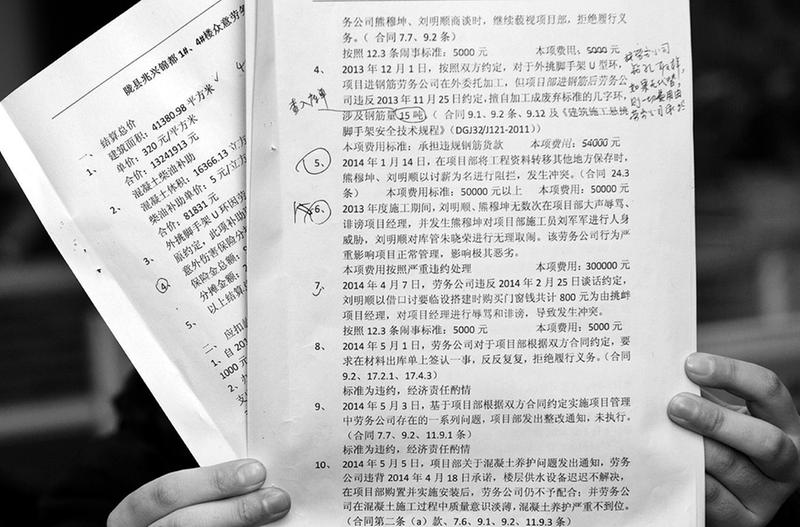 陇县兆兴锦都 1#、4#楼众意劳务
一、结算总价
1、 建筑面积：41380.98 平方米
单价：320 元/平方米
合价：13241913 元
2、 混凝土柴油补助
混凝土体积：16366.13 立方
柴油补助单价：5 元/立方
合价：81831 元
3、 外挑脚手架 U 环因劳
原约定，此项补助
④ 意外伤害保险分
保险金总额：
分摊金额：2
5、 以上结算总
二、应扣
1、自 201
1000 元
2、
支
务公司熊穆坤、刘明顺商谈时，继续藐视项目部，拒绝履行义
务。（ 合同 7.7、9.2 条）
按照 12.3 条闹事标准：5000 元 本项费用：5000 元
4、 2013 年 12 月 1 日，按照双方约定，对于外挑脚手架 U 型环，
项目进钢筋劳务公司在外委托加工，但项目部进钢筋后劳务公
司违反 2013 年 11 月 25 日约定，擅自加工成废弃标准的几字环，
涉及钢筋量 15 吨（ 合同 9.1、9.2 条、9.12 及《建筑施工悬挑
脚手架安全技术规程》（DGJ32/J121-2011））
本项费用标准：承担违规钢筋货款 本项费用：54000 元
5、 2014 年 1 月 14 日，在项目部将工程资料转移其他地方保存时，
熊穆坤、刘明顺以讨薪为名进行阻拦，发生冲突。（合同 24.3
条） 本项费用标准：50000 元以上 本项费用：50000 元
6、 2013 年度施工期间，刘明顺、熊穆坤无数次在项目部大声辱骂、
诽谤项目经理，并发生熊穆坤对项目部施工员刘军军进行人身
威胁，刘明顺对库管朱晓荣进行无理取闹。该劳务公司行为严
重影响项目正常管理，影响极其恶劣。
本项费用按照严重违约处理 本项费用：300000 元
7、 2014 年 4 月 7 日，劳务公司违反 2014 年 2 月 25 日谈话约定，
刘明顺以借口讨要临设搭建时购买门窗钱共计 800 元为由挑衅
项目经理，对项目经理进行辱骂和诽谤，导致发生冲突。
按照 12.3 条闹事标准：5000 元 本项费用：5000 元
8、 2014 年 5 月 1 日，劳务公司对于项目部根据双方合同约定，要
求在材料出库单上签认一事，反反复复，拒绝履行义务。（合同
9.2、17.2.1、17.4.3）
标准为违约，经济责任酌情
9、 2014 年 5 月 3 日，基于项目部根据双方合同约定实施项目管理
中劳务公司存在的一系列问题，项目部发出整改通知，未执行。
（合同 7.7、9.2、11.9.1 条）
标准为违约，经济责任酌情
10、 2014 年 5 月 5 日，项目部关于混凝土养护问题发出通知，劳务
公司违背 2014 年 4 月 18 日承诺，楼层供水设备迟迟不解决，
在项目部购置并实施安装后，劳务公司仍不予配合；并劳务公
司在混凝土施工过程中质量意识淡薄，混凝土养护严重不到位。
（合同第二条（a）款、7.6、9.1、9.2、11.9.3 条）